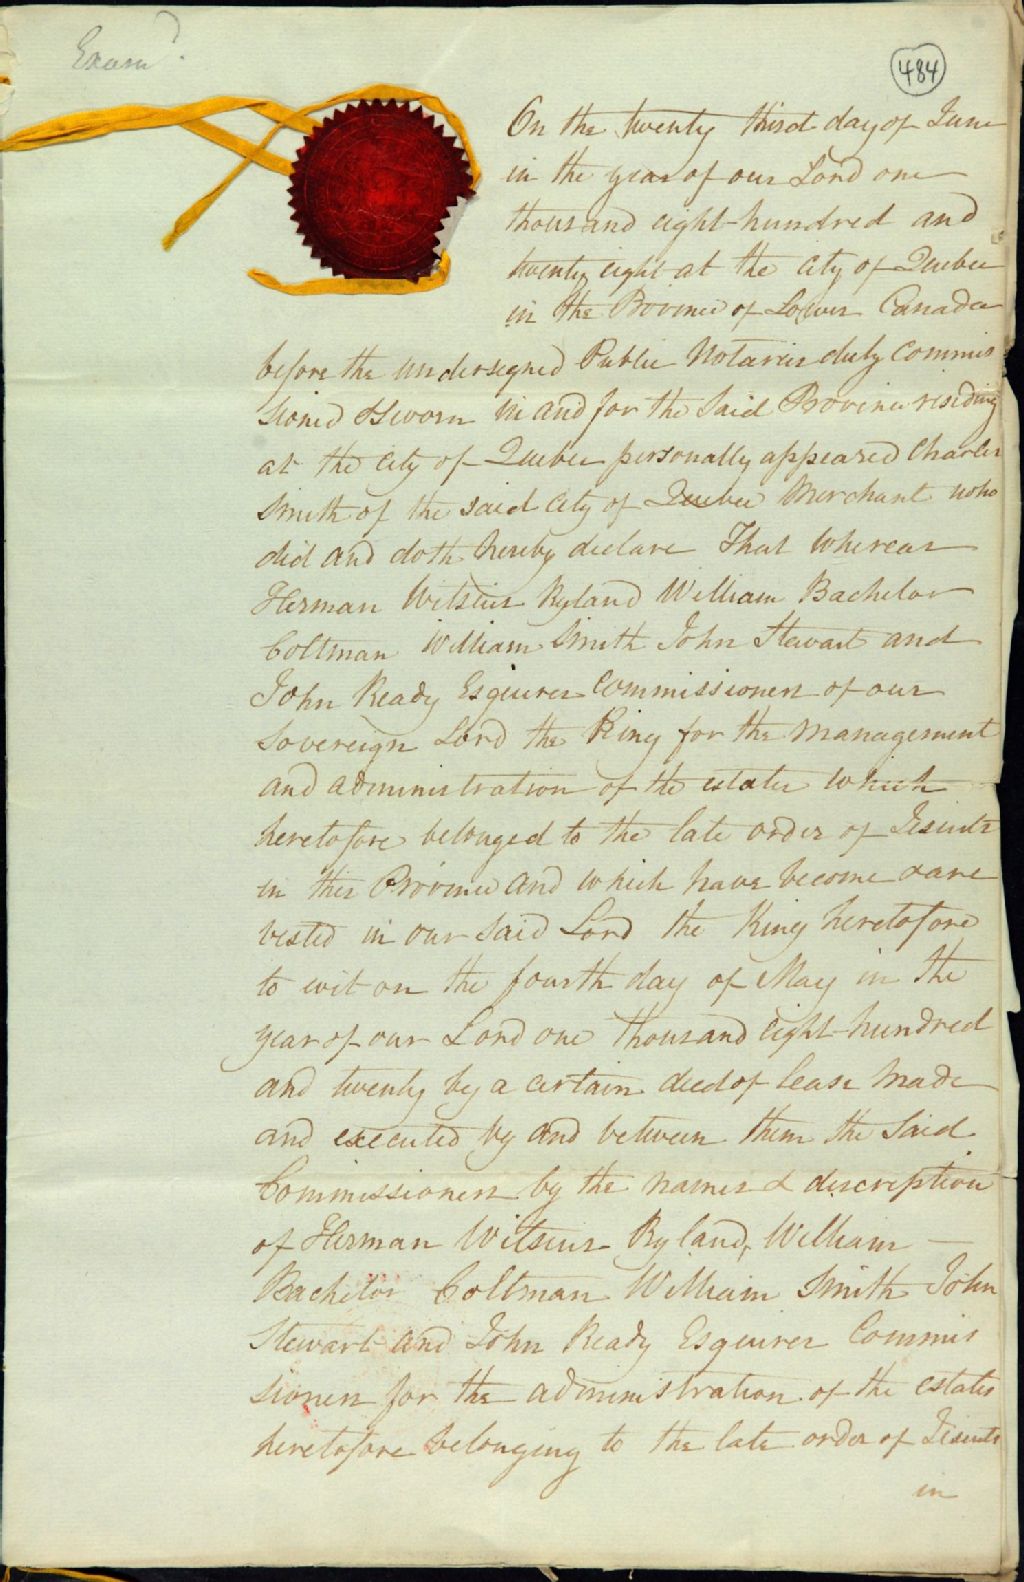 Exam^d.
484
On the twenty third day of June
in the year of our Lord one
thousand eight hundred and
twenty eight at the City of Quebec
in the Province of Lower Canada
before the undersigned Public Notaries duly Commis
sioned & sworn in and for the said Province residing
at the City of Quebec personally appeared Charles
Smith of the said City of Quebec Merchant who
did and doth hereby declare That Whereas
Herman Witsius Ryland William Bachelor
Coltman William Smith John Stewart and
John Ready Esquires Commissioners of our
Sovereign Lord the King for the Management
and administration of the estates which
heretofore belonged to the late order of Jesuits
in this Province and which have become & are
vested in our said Lord the King heretofore
to wit on the fourth day of May in the
year of our Lord one thousand eight hundred
and twenty by a certain deed of lease Made
and executed by and between them the Said
Commissioners by the names & discreption
of Herman Witsius Ryland, William
Bachelor Coltman William Smith John
Stewart and John Ready Esquires Commis
sioners for the administration of the estates
heretofore belonging to the late order of Jesuits
in